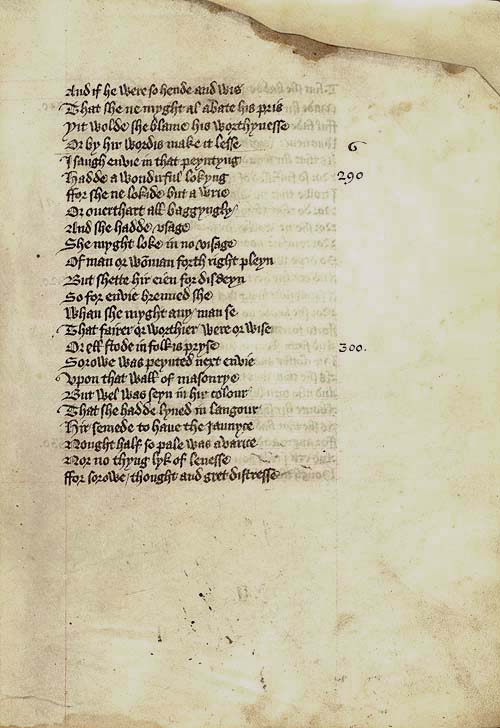 And if he were so hende and wis
That she ne myght al abate his pris
Yit wolde she blame his worthynesse
Or by hir wordis make it lesse
I saugh envie in that peyntyng 6
Hadde a wondirful lokyng 290
ffor she ne lokide but a wrie
Or ouerthart all baggyngly
And she hadde vsage
She myght loke in no visage
Of man or wōman forth right pleyn
But shette hir eien for disdeyn
So for envie brenned she
Whan she myght any man se
That fairer or worthier were or wise
Or ell stode in folkis pryse 300.
Sorowe was peynted next envie
Vpon that wall of masonrye
But wel was seyn in hir colour
That she hadde lyued in langour
Hir semede to haue the Jaunyce
Nought half so pale was avarice
Nor no thyng lyk of lenesse
ffor sorowe / thought and gret distresse